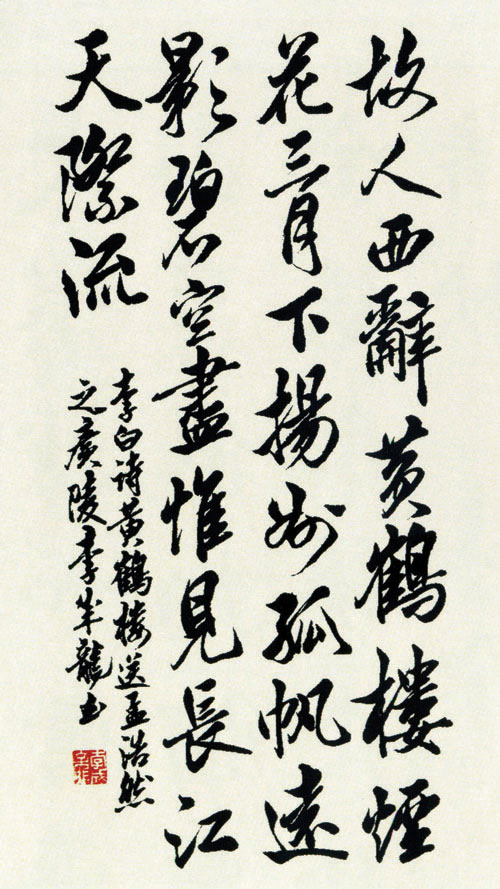 故人西辭黄鶴樓煙
花三月下揚州孤帆遠
影碧空盡惟見長江
天際流
李白诗黄鶴楼送孟浩然
之廣陵李龍书